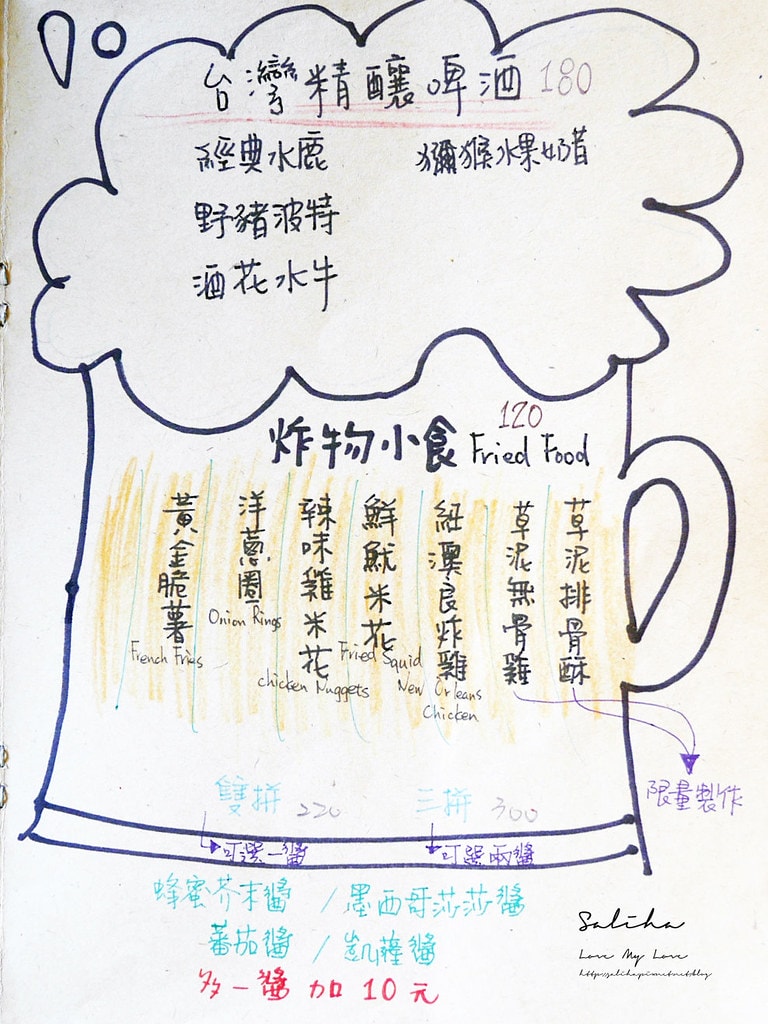 台灣精釀啤酒 180
經典水鹿
獼猴水果奶昔
野豬波特
酒花水牛
120
炸物小食 Fried Food
草泥排骨酥
草泥無骨雞
紐澳良炸雞
New Orleans
Chicken
鮮魷米花
Fried Squid
辣味雞米花
chicken Nuggets
洋蔥圈
Onion Rings
黃金脆薯
French Fries
限量製作
雙拼 220
三拼 300
可選一醬
可選兩醬
蜂蜜芥末醬 / 墨西哥莎莎醬
蕃茄醬 / 凱薩醬
多一醬 加 10 元
Saliha
Love My Love
http://saliha.pixnet.net/blog